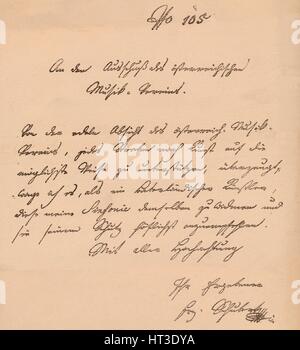 No 105
An den Ausschuß des österreichischen
Musik-Vereins.
Von der edlen Absicht des österreich. Musik-
Vereins, jedes Streben nach Kunst auf die
möglichste Weise zu unterstützen, überzeugt,
wage ich es, als ein vaterländischer Künstler,
diese meine Sinfonie demselben zu widmen und
sie seinem Schutz höflichst anzuempfehlen.
Mit aller Hochachtung
Ihr Ergebener
Frz. Schubert
alamy
Image ID: HT3DYA
www.alamy.com